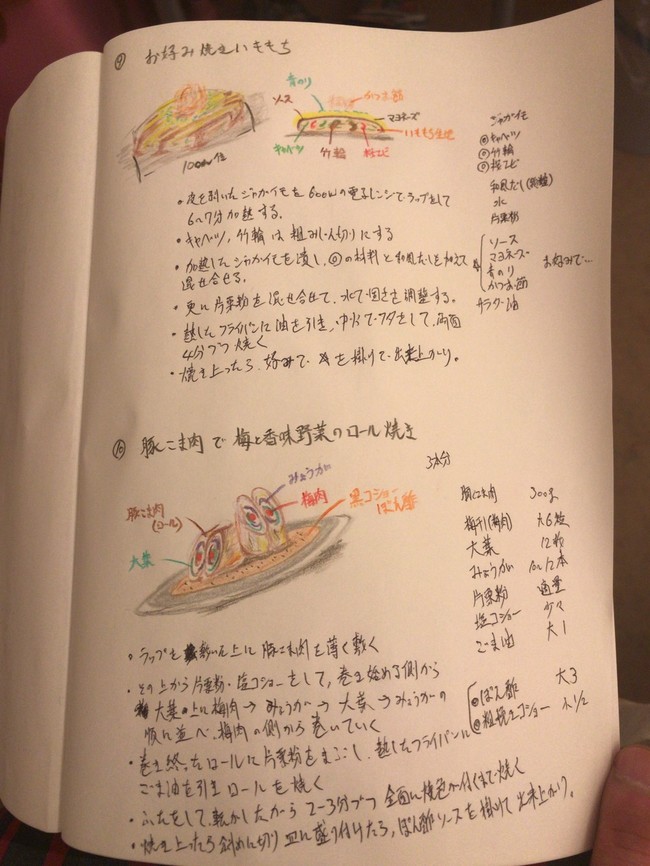 ⑨ お好み焼きいももち
青のり
ソース
かつお節
マヨネーズ
いももち生地
キャベツ
竹輪
桜エビ
100cm位
ジャガイモ
◎キャベツ
◎竹輪
◎桜エビ
和風だし(顆粒)
水
片栗粉
ソース
マヨネーズ
青のり
かつお節
お好みで…
サラダ油
・皮を剥いたジャガイモを600Wの電子レンジでラップをして
6〜7分加熱する。
・キャベツ,竹輪は粗みじん切りにする
・加熱したジャガイモを潰し,◎の材料と和風だしを加えて
混ぜ合せる。
・更に片栗粉を混ぜ合せて,水で固さを調整する。
・熱したフライパンに油を引き,中火でフタをして,両面
4分づつ焼く
・焼き上ったら,好みで☆を掛けて出来上がり。
⑩ 豚こま肉で梅と香味野菜のロール焼き
3本分
みょうが
豚こま肉
(ロール)
梅肉
黒コショー
ぽん酢
大葉
豚こま肉 300g
梅干(梅肉) 大6粒
大葉 12枚
みょうが
片栗粉 適量
塩コショー 少々
ごま油 大1
◎ぽん酢 大3
◎粗挽黒コショー 小1/2
・ラップを敷いた上に豚こま肉を薄く敷く
・その上から片栗粉・塩コショーをして,巻き始める側から
大葉の上に梅肉→みょうが→大葉→みょうがの
順に並べ,梅肉の側から巻いていく
・巻き終ったロールに片栗粉をまぶし,熱したフライパンに
ごま油を引きロールを焼く
・ふたをして,転がしながら2〜3分づつ全面に焼色が付くまで焼く
・焼き上ったら斜めに切り皿に盛り付けたら,ぽん酢ソースを掛けて出来上がり。